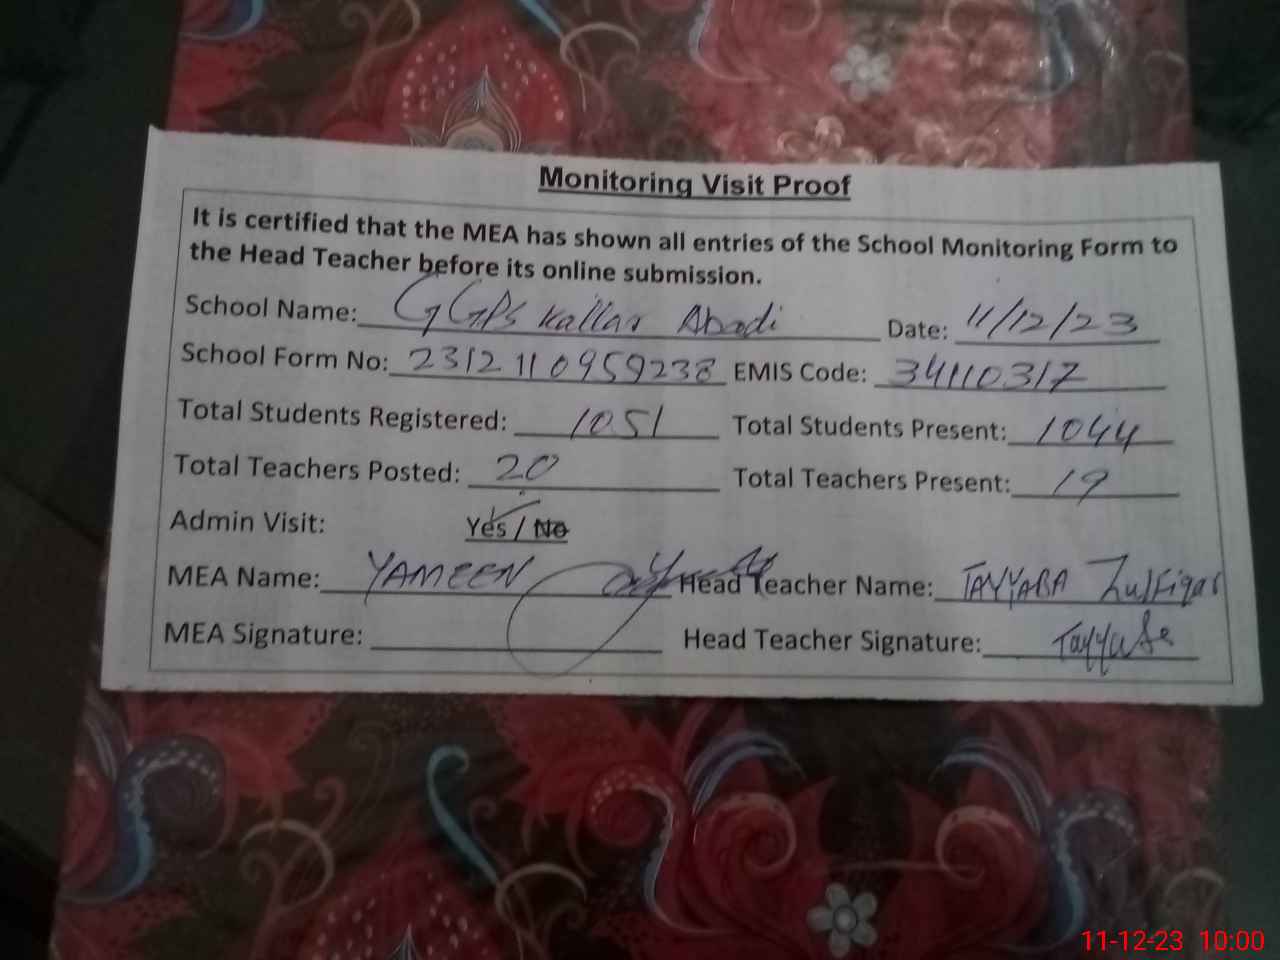 Monitoring Visit Proof
It is certified that the MEA has shown all entries of the School Monitoring Form to
the Head Teacher before its online submission.
School Name: GGPS Kallar Abadi Date: 11/12/23
School Form No: 2312110959238 EMIS Code: 34110317
Total Students Registered: 1051 Total Students Present: 1044
Total Teachers Posted: 20 Total Teachers Present: 19
Admin Visit: Yes / No
MEA Name: YAMEEN Head Teacher Name: TAYYABA Zulfiqar
MEA Signature: Head Teacher Signature:
11-12-23 10:00